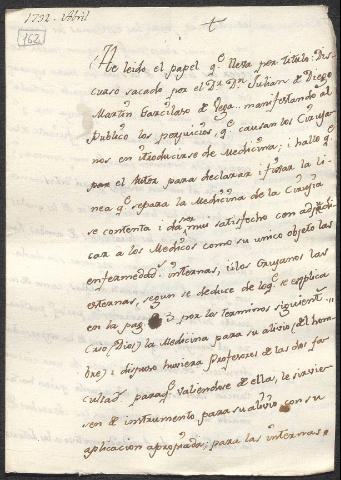 1792 - Abril
162
+
He leido el papel q.e lleva por titulo: Dis-
curso sacado por el D.r D.n Julian de Diego
Martin Garcilaso de Vega. manifestando al
Publico los perjuicios, q.e causan los Ciruja-
nos en introducirse de Medicina; i hallo q.e
para el Autor para declarar i fixar la li-
nea q.e separa la Medicina de la Cirugia
se contenta i da ser mui satisfecho con adjudi-
car a los Medicos como su unico objeto las
enfermedad.s internas, i á los Cirujanos las
esternas, segun se deduce de loq.e se esplica
en la pag 3 por los terminos siguient.s
Crio (Dios) la Medicina para su alivio (de el hom-
bre) i dispuso huviera Profesores de las dos fa-
cultad.s paraq.e valiendose de ella, le sirvie-
sen de instrumento para su alivio con su
aplicacion apropriada; para las internas,